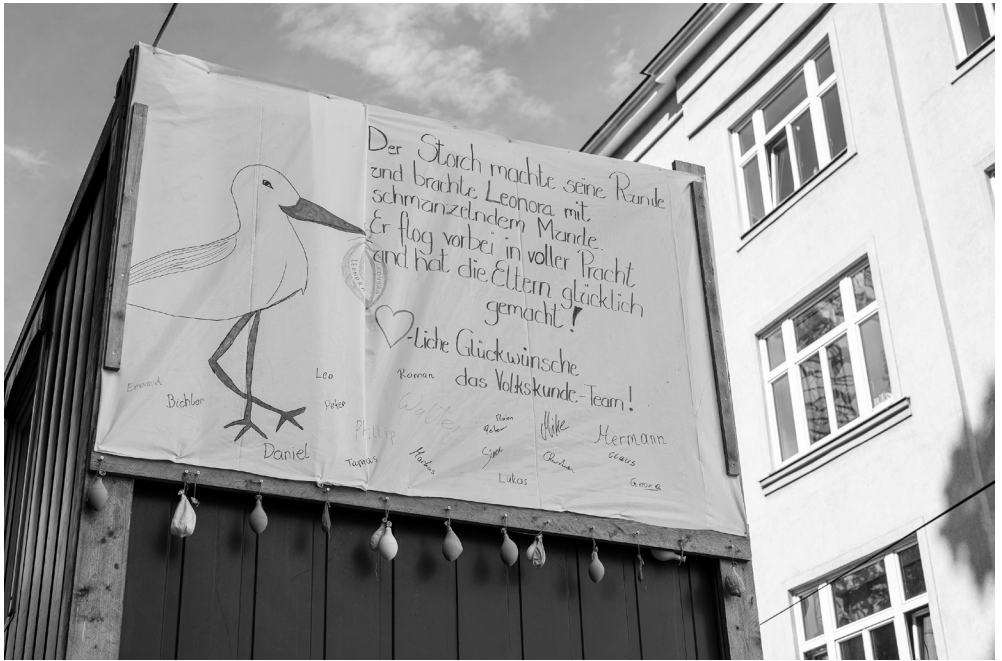 Der Storch machte seine Runde
und brachte Leonora mit
schmanzelndem Mande.
Er flog vorbei in voller Pracht
und hat die Eltern glücklich
gemacht!
-liche Glückwünsche
das Volkskunde-Team!
Emanuel
Bichler
Leo
Peter
Daniel
Roman
Walter
Phillip
Tamas
Markus
Lukas
Mike
Christian
Hermann
Claus
Georg